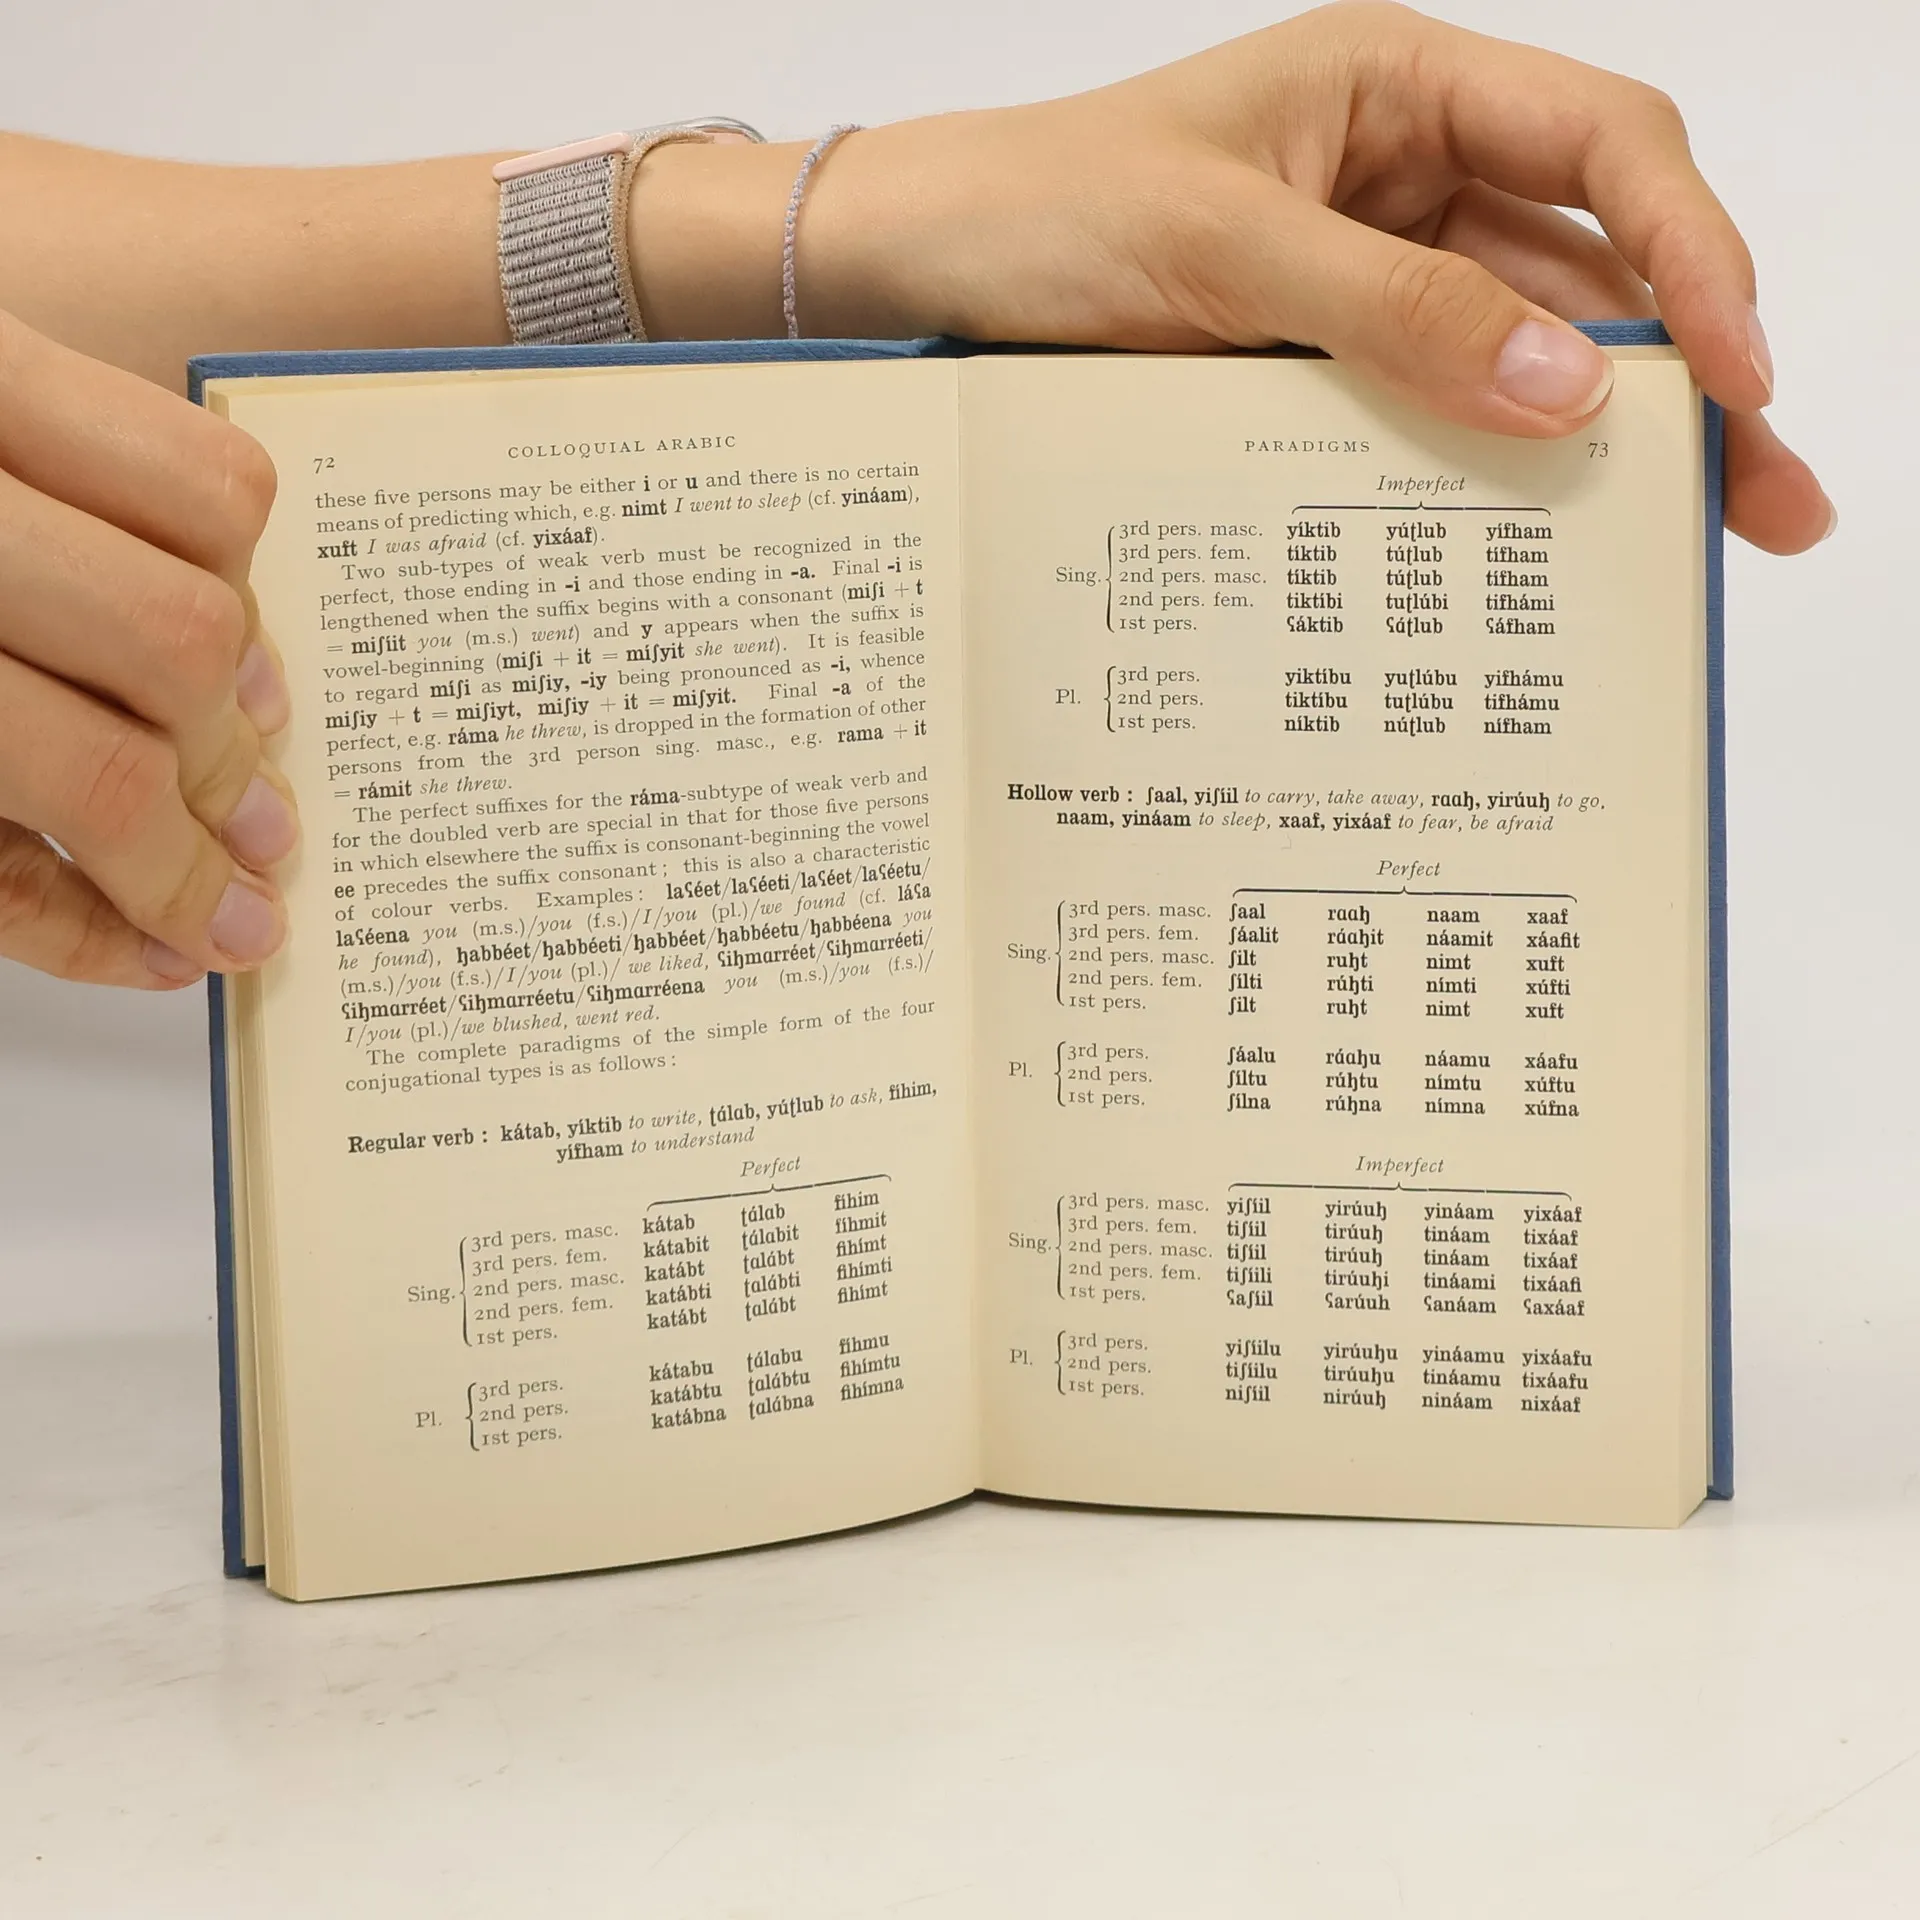 72
COLLOQUIAL ARABIC
these five persons may be either i or u and there is no certain
means of predicting which, e.g. nimt I went to sleep (cf. yináam),
xuft I was afraid (cf. yixáaf).
Two sub-types of weak verb must be recognized in the
perfect, those ending in -i and those ending in -a. Final -i is
lengthened when the suffix begins with a consonant (miʃi + t
= miʃíit you (m.s.) went) and y appears when the suffix is
vowel-beginning (miʃi + it = míʃyit she went). It is feasible
to regard míʃi as miʃiy, -iy being pronounced as -i, whence
miʃiy + t = miʃiyt, miʃiy + it = miʃyit. Final -a of the
perfect, e.g. ráma he threw, is dropped in the formation of other
persons from the 3rd person sing. masc., e.g. rama + it
= rámit she threw.
The perfect suffixes for the ráma-subtype of weak verb and
for the doubled verb are special in that for those five persons
in which elsewhere the suffix is consonant-beginning the vowel
ee precedes the suffix consonant ; this is also a characteristic
of colour verbs. Examples : laʕéet/laʕéeti/laʕéet/laʕéetu/
laʕéena you (m.s.)/you (f.s.)/I/you (pl.)/we found (cf. láʕa
he found), ḥabbéet/ḥabbéeti/ḥabbéet/ḥabbéetu/ḥabbéena you
(m.s.)/you (f.s.)/I/you (pl.)/ we liked, ʕiḥmɑrréet/ʕiḥmɑrréeti/
ʕiḥmɑrréet/ʕiḥmɑrréetu/ʕiḥmɑrréena you (m.s.)/you (f.s.)/
I/you (pl.)/we blushed, went red.
The complete paradigms of the simple form of the four
conjugational types is as follows :
Regular verb : kátab, yíktib to write, ţálɑb, yúţlub to ask, fíhim,
yífham to understand
Perfect
Sing.
3rd pers. masc. kátab ţálɑb fíhim
3rd pers. fem. kátabit ţálɑbit fíhmit
2nd pers. masc. katábt ţɑlábt fihímt
2nd pers. fem. katábti ţɑlábti fihímti
1st pers. katábt ţɑlábt fihímt
Pl.
3rd pers. kátabu ţálɑbu fíhmu
2nd pers. katábtu ţɑlábtu fihímtu
1st pers. katábna ţɑlábna fihímna
PARADIGMS
73
Imperfect
Sing.
3rd pers. masc. yíktib yúţlub yífham
3rd pers. fem. tíktib túţlub tífham
2nd pers. masc. tíktib túţlub tífham
2nd pers. fem. tiktíbi tuţlúbi tifhámi
1st pers. ʕáktib ʕáţlub ʕáfham
Pl.
3rd pers. yiktíbu yuţlúbu yifhámu
2nd pers. tiktíbu tuţlúbu tifhámu
1st pers. níktib núţlub nífham
Hollow verb : ʃaal, yiʃíil to carry, take away, rɑɑḥ, yirúuḥ to go,
naam, yináam to sleep, xaaf, yixáaf to fear, be afraid
Perfect
Sing.
3rd pers. masc. ʃaal rɑɑḥ naam xaaf
3rd pers. fem. ʃáalit rɑ́ɑḥit náamit xáafit
2nd pers. masc. ʃilt ruḥt nimt xuft
2nd pers. fem. ʃílti rúḥti nímti xúfti
1st pers. ʃilt ruḥt nimt xuft
Pl.
3rd pers. ʃáalu rɑ́ɑḥu náamu xáafu
2nd pers. ʃíltu rúḥtu nímtu xúftu
1st pers. ʃílna rúḥna nímna xúfna
Imperfect
Sing.
3rd pers. masc. yiʃíil yirúuḥ yináam yixáaf
3rd pers. fem. tiʃíil tirúuḥ tináam tixáaf
2nd pers. masc. tiʃíil tirúuḥ tináam tixáaf
2nd pers. fem. tiʃíili tirúuḥi tináami tixáafi
1st pers. ʕaʃíil ʕarúuh ʕanáam ʕaxáaf
Pl.
3rd pers. yiʃíilu yirúuḥu yináamu yixáafu
2nd pers. tiʃíilu tirúuḥu tináamu tixáafu
1st pers. niʃíil nirúuḥ nináam nixáaf